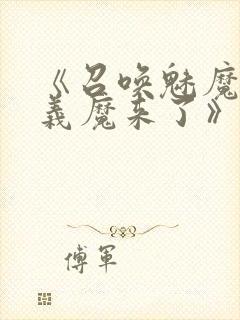 《召唤魅魔
義魔来了》
傅軍